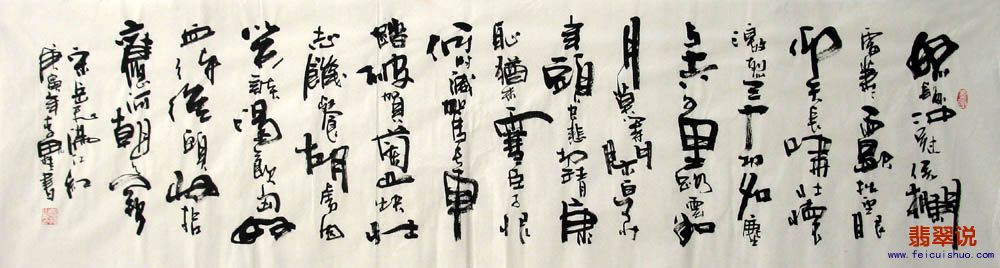 怒髮冲冠凭欄
處蕭蕭雨歇抬望眼
仰天長嘯壯懷
激烈三十功名塵
与土八千里路雲和
月莫等閒白了少
年頭空悲切靖康
恥猶未雪臣子恨
何時滅駕長車
踏破賀蘭山缺壯
志饑餐胡虜肉
笑談渴飲匈奴
血待從頭收拾
河朝天闕
宋岳飛滿江红
庚寅年書
翡翠说
www.feicuishuo.com